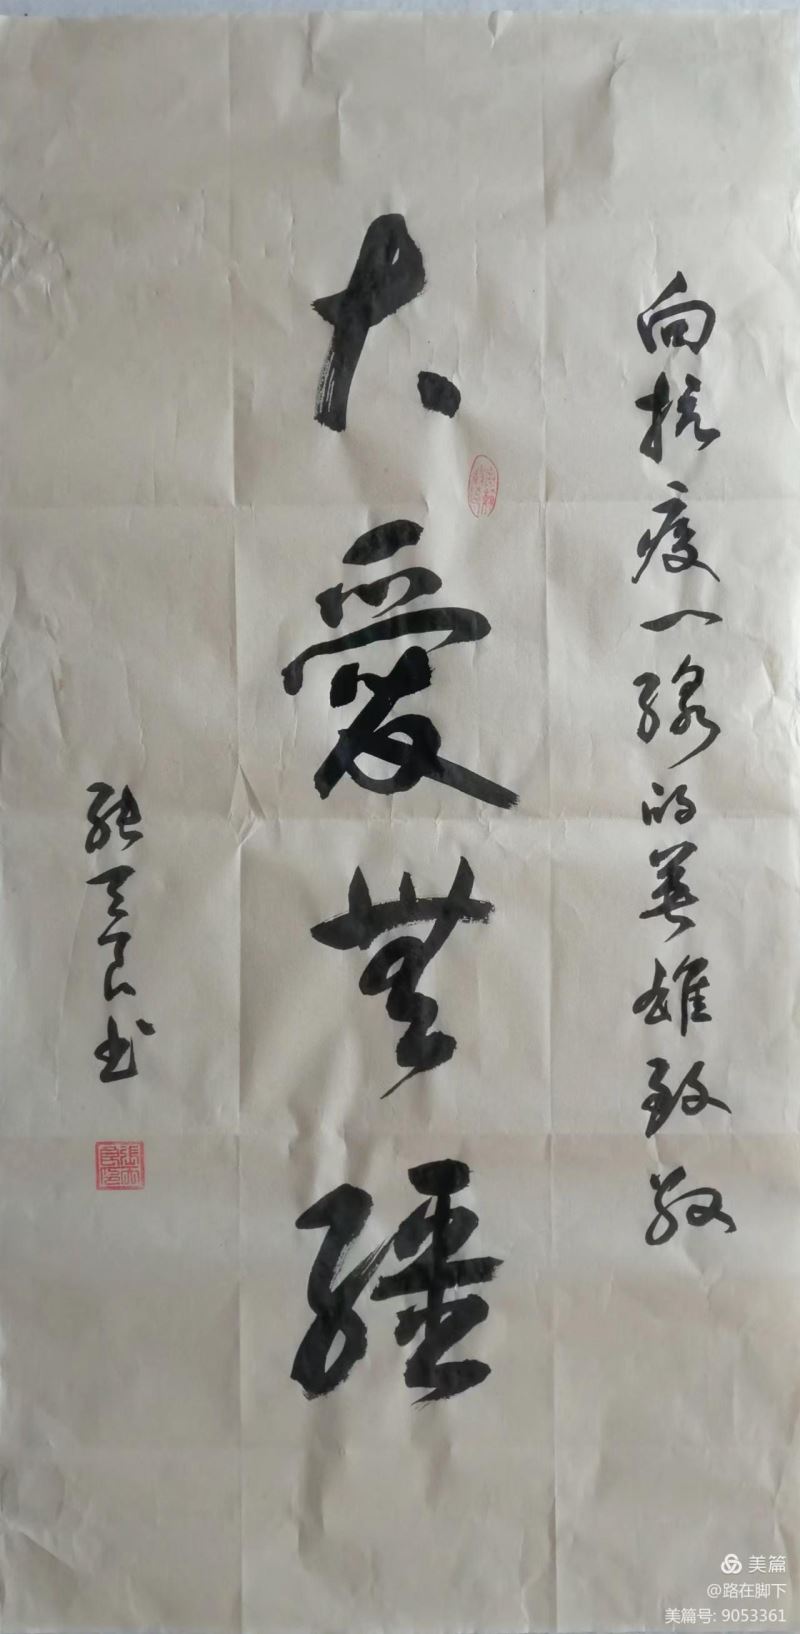 向抗疫一線的英雄致敬
大愛無疆
张天良书
美篇
@路在脚下
美篇号: 9053361